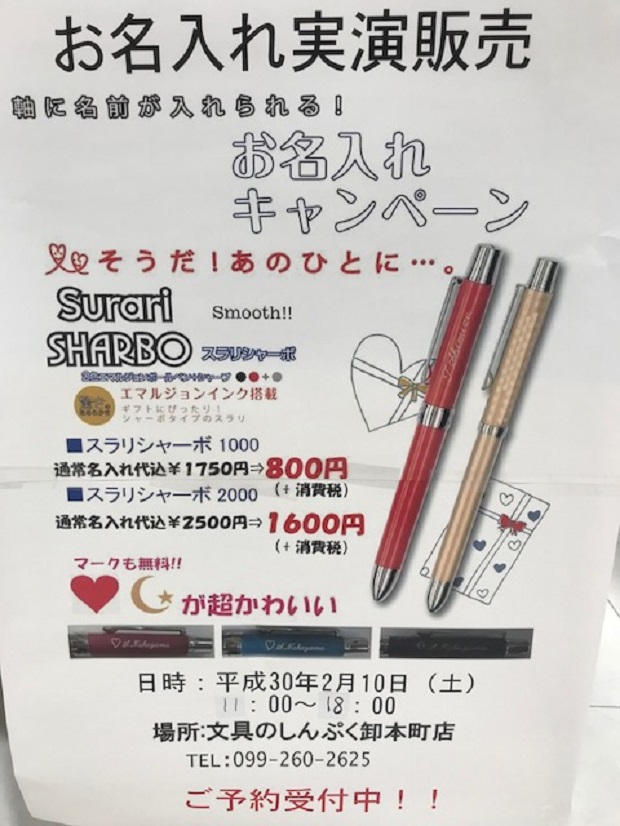 お名入れ実演販売
軸に名前が入れられる！
お名入れ
キャンペーン
そうだ！あのひとに…。
Surari
Smooth!!
SHARBO スラリシャーボ
2色エマルジョンボールペン+シャープ
エマルジョンインク搭載
ギフトにぴったり！
シャーボタイプのスラリ
■スラリシャーボ 1000
通常名入れ代込￥1750円⇒800円
(+消費税)
■スラリシャーボ 2000
通常名入れ代込￥2500円⇒1600円
(+消費税)
マークも無料!!
が超かわいい
日時：平成30年2月10日（土）
11：00～18：00
場所:文具のしんぷく卸本町店
TEL:099-260-2625
ご予約受付中！！